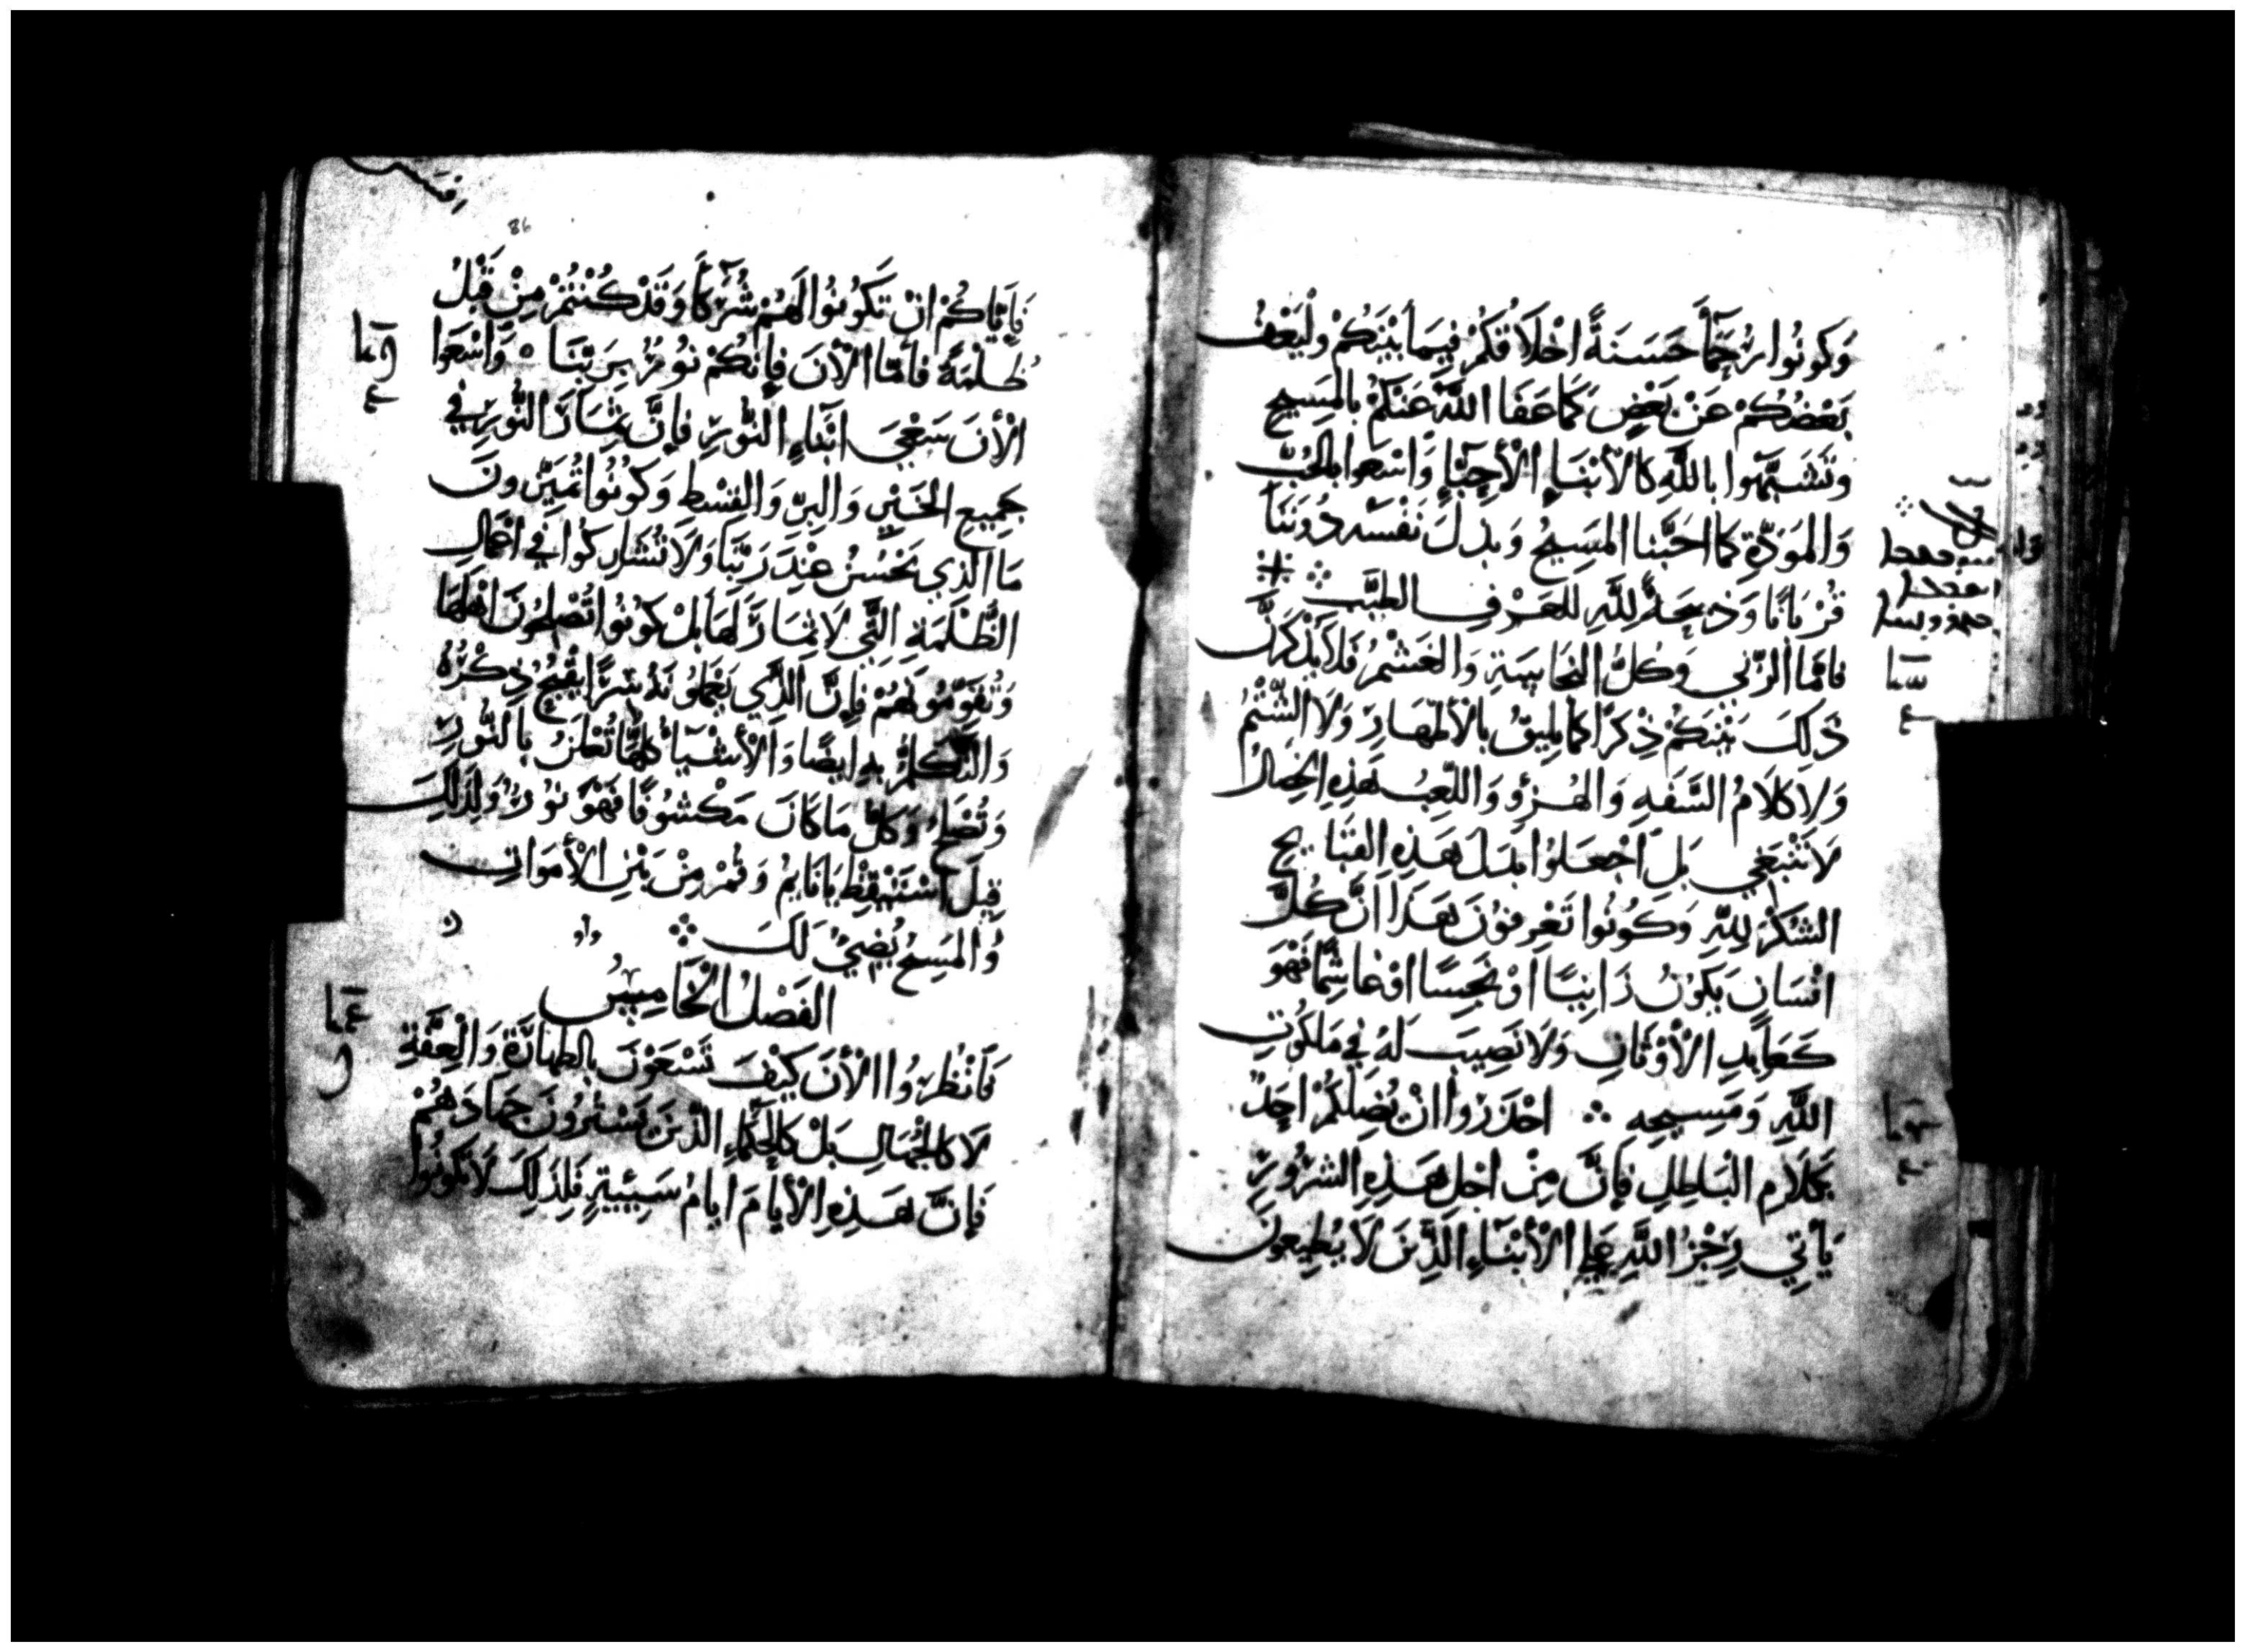 وَكُونُوا رُحَمَآَ حَسَنَةً اخْلَاقُكُمْ فِيمَا بَيْنَكُمْ وَلْيَعْفُ
بَعْضُكُمْ عَنْ بَعْضٍ كَمَا عَفَا اللَّهُ عَنْكُمْ بِالمَسِيحِ
وَتَشَبَّهُوا بِاللَّهِ كَالأَبْنَاءِ الأَحِبَّاءِ وَاسْعَوا بِالحُبِّ
وَالمَوَدَّةِ كَمَا احَبَّنَا المَسِيحُ وَبَذَلَ نَفْسَهُ دُونَنَا
قُرْبَانًا وَذَبِيحَةً لِلَّهِ لِلعَرْفِ الطَيِّبِ
فَامَّا الزِّنَى وَكُلُّ النَجَاسَةِ وَالغَشْمُ فَلَا يُذْكَرَنَّ
ذَلِكَ بَيْنَكُمْ ذِكْرًا كَمَا يَلِيقُ بِالأَطْهَارِ وَلَا الشَّتْمُ
وَلَا كَلَامُ السَّفَهِ وَالهُزُوِ وَاللَّعِبُ هَذِهِ الخِصَالُ
لَا تَنْبَغِي بَلِ اجْعَلُوا بَدَلَ هَذِهِ القَبَايِحِ
الشُكْرَ لِلَّهِ وَكُونُوا تَعْرِفُونَ هَذَا انَّ كُلَّ
انْسَانٍ يَكُونُ زَانِيًا اوْ نَجِسًا اوْ غَاشِمًا فَهْوَ
كَعَابِدِ الأَوْثَانِ وَلَا نَصِيبَ لَهُ فِي مَلَكُوتِ
اللَّهِ وَمَسِيحِهِ احْذَرُوا انْ يُضِلَّكُمْ احَدٌ
بِكَلَامِ البَاطِلِ فَإِنَّ مِنْ اجْلِ هَذِهِ الشُرُورِ
يَأْتِي رِجْزُ اللَّهِ عَلَى الأَبْنَاءِ الَّذِينَ لَا يُطِيعُونَ
86
فَإِيَّاكُمْ انْ تَكُونُوا لَهُمْ شُرَكَآَ وَقَدْ كُنْتُمْ مِنْ قَبْلُ
ظُلْمَةً فَأَمَّا الأَنَ فَإِنَّكُمْ نُورٌ بِرَبِّنَا وَاسْعَوا
الأَنَ سَعْيَ ابْنَاءِ النُّورِ فَإِنَّ ثِمَارَ النُّورِ فِي
جَمِيعِ الخَيْرِ وَالبِرِّ وَالقِسْطِ وَكُونُوا تُمَيِّزُونَ
مَا الَّذِي يَحْسُنُ عِنْدَ رَبِّنَا وَلَا تُشَارِكُوا فِي اعْمَالِ
الظُّلْمَةِ الَّتِي لَا ثِمَارَ لَهَا بَلْ كُونُوا تُصْلِحُونَ اهْلَهَا
وَتُقَوِّمُونَهُمْ فَإِنَّ الَّذِي يَعْمَلُونَهُ سِرًّا يَقْبُحُ ذِكْرُهُ
وَالتَّكَلُّمُ بِهِ ايْضًا وَالأَشْيَآءُ كُلُّهَا تُعْلَنُ بِالنُّورِ
وَتُضِحُ وَكُلُّ مَا كَانَ مَكْشُوفًا فَهْوَ نُورٌ وَلِذَلِكَ
قِيلَ اسْتَيْقِظْ يَا نَايِمُ وَقُمْ مِنْ بَيْنِ الأَمْوَاتِ
وَالمَسِيحُ يُضِيُ لَكَ
الفَصْلُ الْخَامِسُ
فَانْظُرُوا الأَنَ كَيْفَ تَسْعَوْنَ بِالطَهَارَةِ وَالْعِفَّةِ
لَا كَالجُهَّالِ بَلْ كَالحُكَمَاءِ الَّذِينَ يَشْتَرُونَ جِهَادَهُمْ
فَإِنَّ هَذِهِ الأَيَامَ ايَامُ سَيِّيَةٍ فَلِذَلِكَ لَا تَكُونُوا